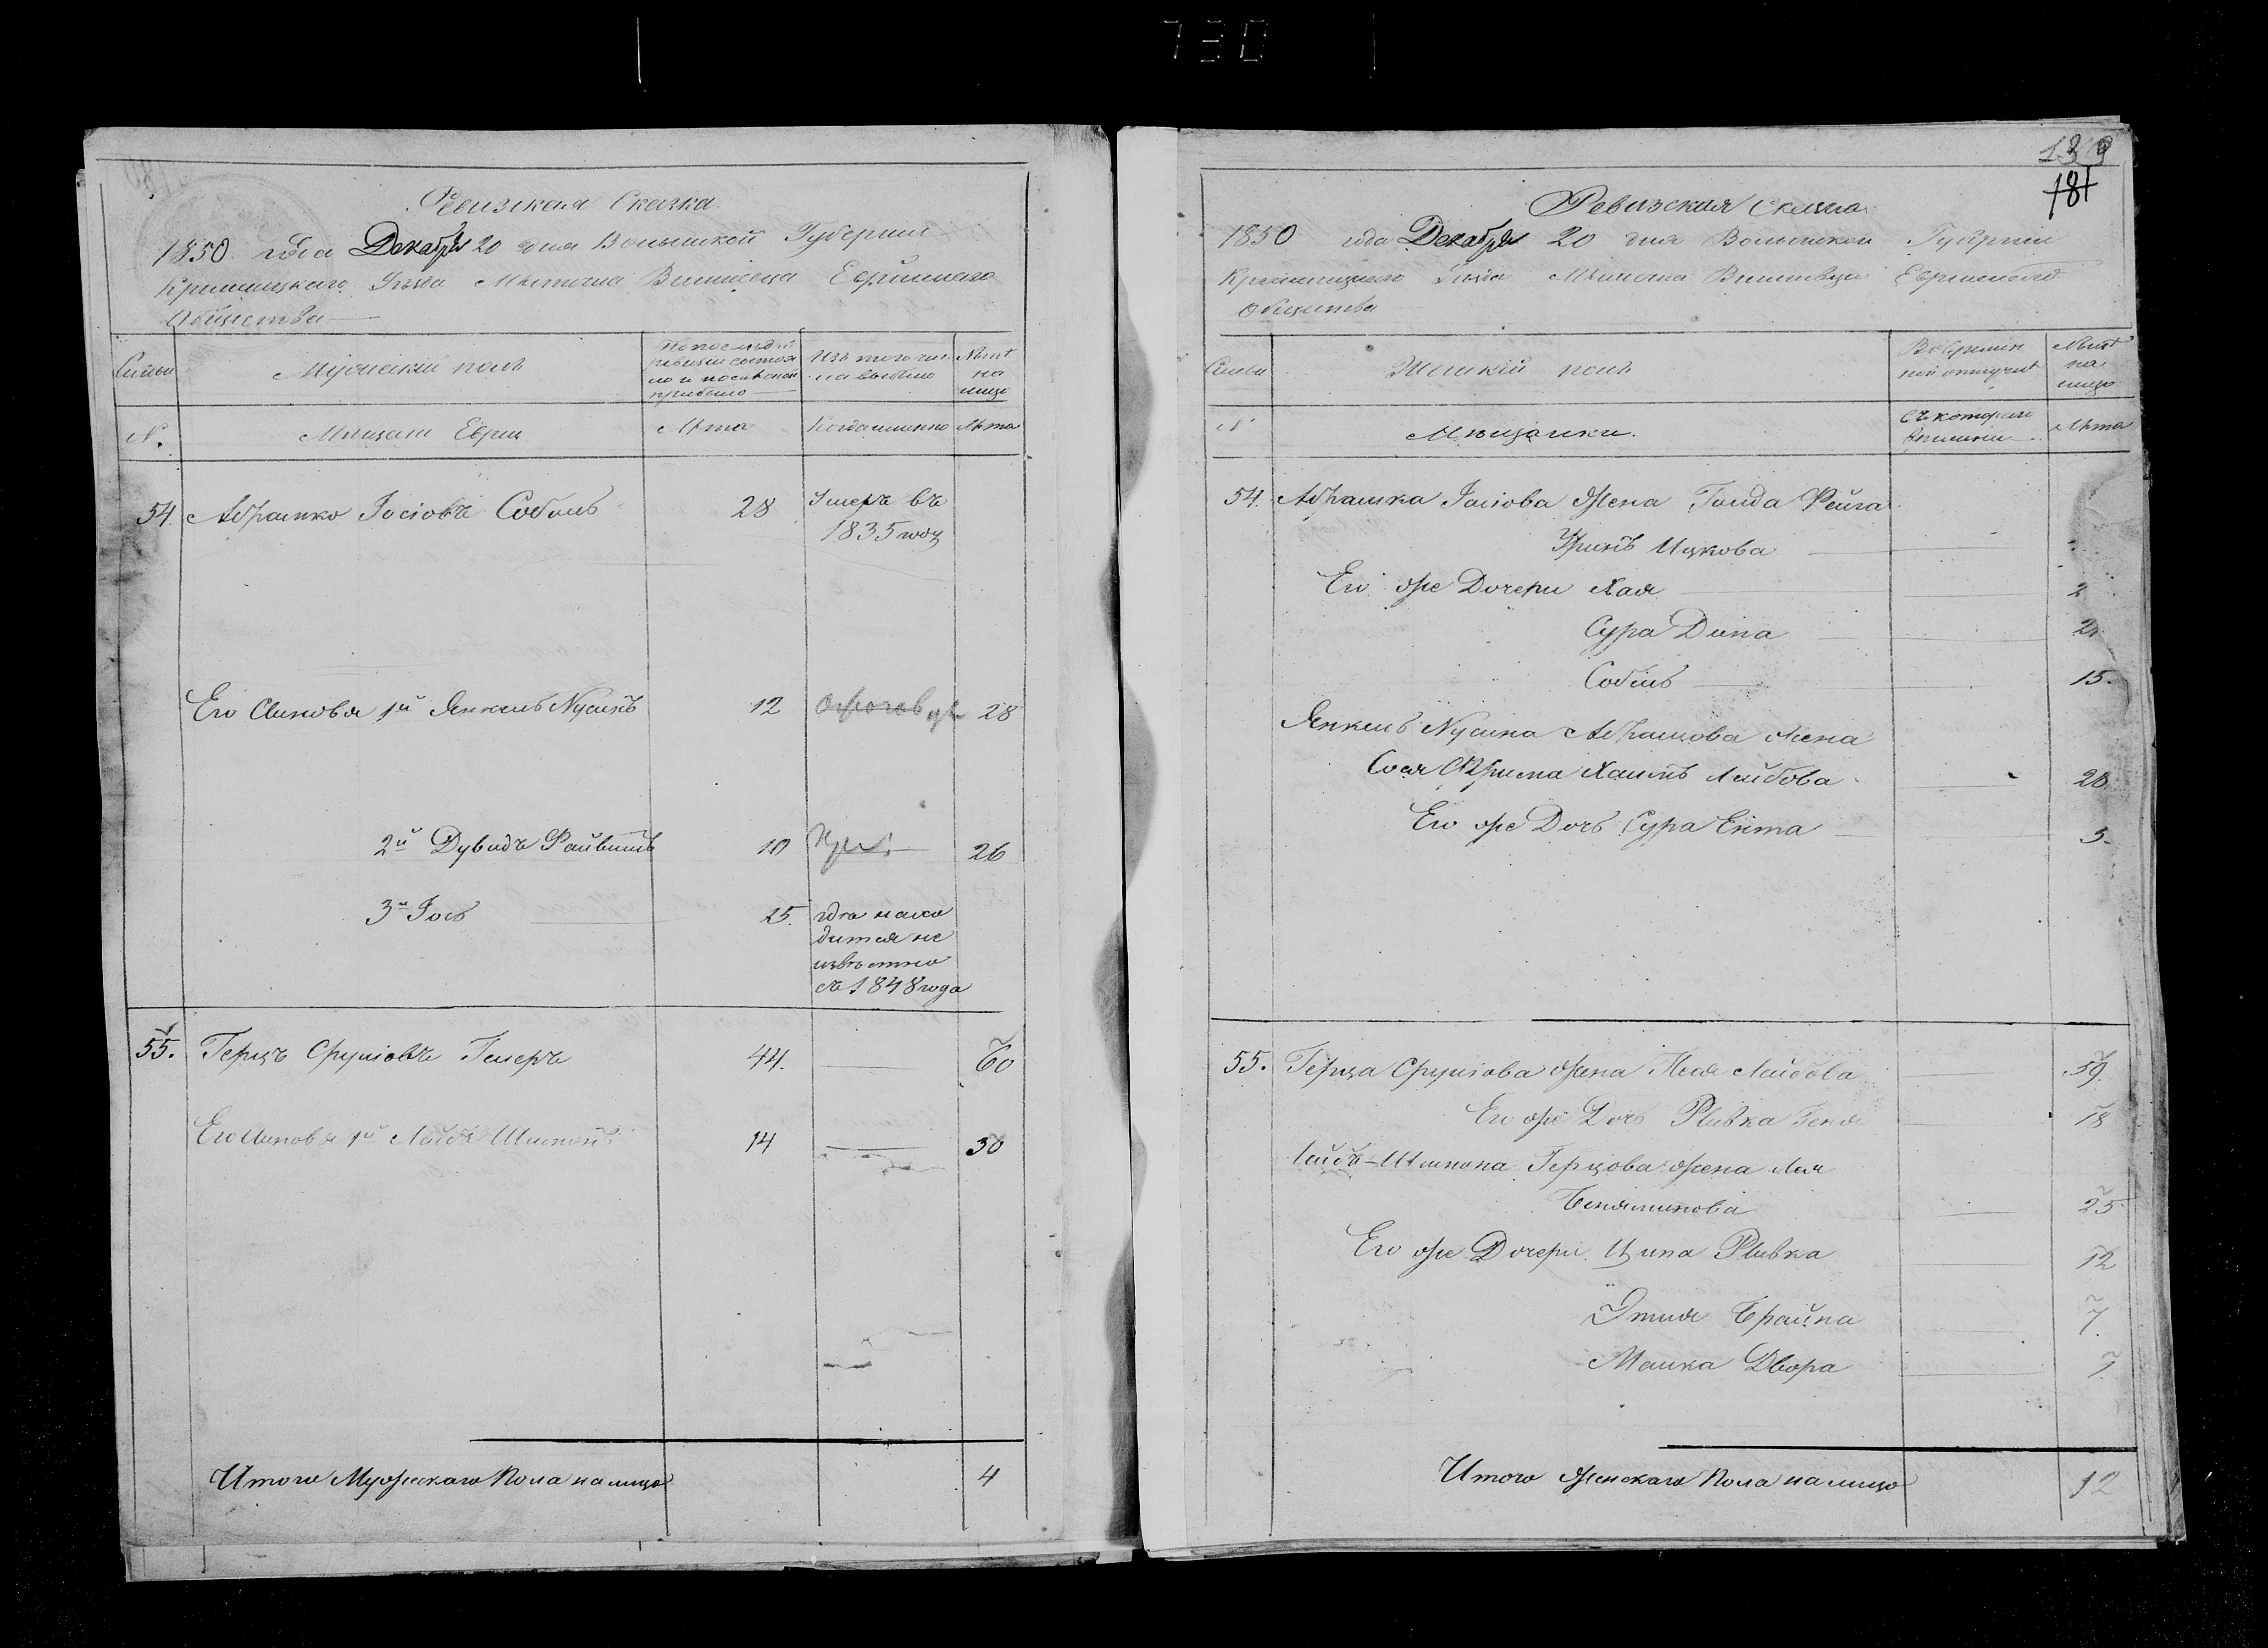 730
Ревизская Сказка
1850 года Декабря 20 дня Волынской Губернии
Кременецкаго Уезда Местечка Вишневца Еврейскаго
Общества
Семьи
Мужеский полъ
По последней ревизіи состояло и после оной прибыло
Изъ того числа выбыло
Ныне на лицо
№.
Мещане Евреи
Лета
Когда именно
Лета
54. Абрамко Іосіовъ Соболь 28 Умеръ въ
1835 году
Его Сыновья 1й Янкель Нусинъ 12 28
2й Дувидъ Файвишъ 10 26
3й Іось 25. где нахо
дится не
известно
съ 1848 года
55. Герцъ Сруліовъ 44. 60
Его Сыновья 1й Лейбъ Шимонъ 14 30
Итого Мужескаго Пола на лицо 4
139
181
Ревизская Сказка
1850 года Декабря 20 дня Волынской Губерніи
Кременецкаго Уезда Местечка Вишневца Еврейскаго
Общества
Семьи
Женскій полъ
Во временной отлучке
Ныне на лицо
№
Мещанки.
Съ котораго времени
Лета
54. Абрамка Іосіова Жена Голда Фейга
Ицкова
Его же Дочери Хая 2
Сура Дина 21
Собель 15.
Янкель Нусина Абрамова Жена
Сося Фрима Хаимъ Лейбова 28
Его же Дочь Сура Ента 3.
55. Герца Сруліова Жена Нехя Лейбова 59.
Его же Дочь Ривка Геня 18
Лейбъ-Шимона Герцова Жена Лея
Беняминова 25
Его же Дочери Ципа Ривка 12
Этля Брайна 7.
Малка Двора 7
Итого Женскаго Пола на лицо 12